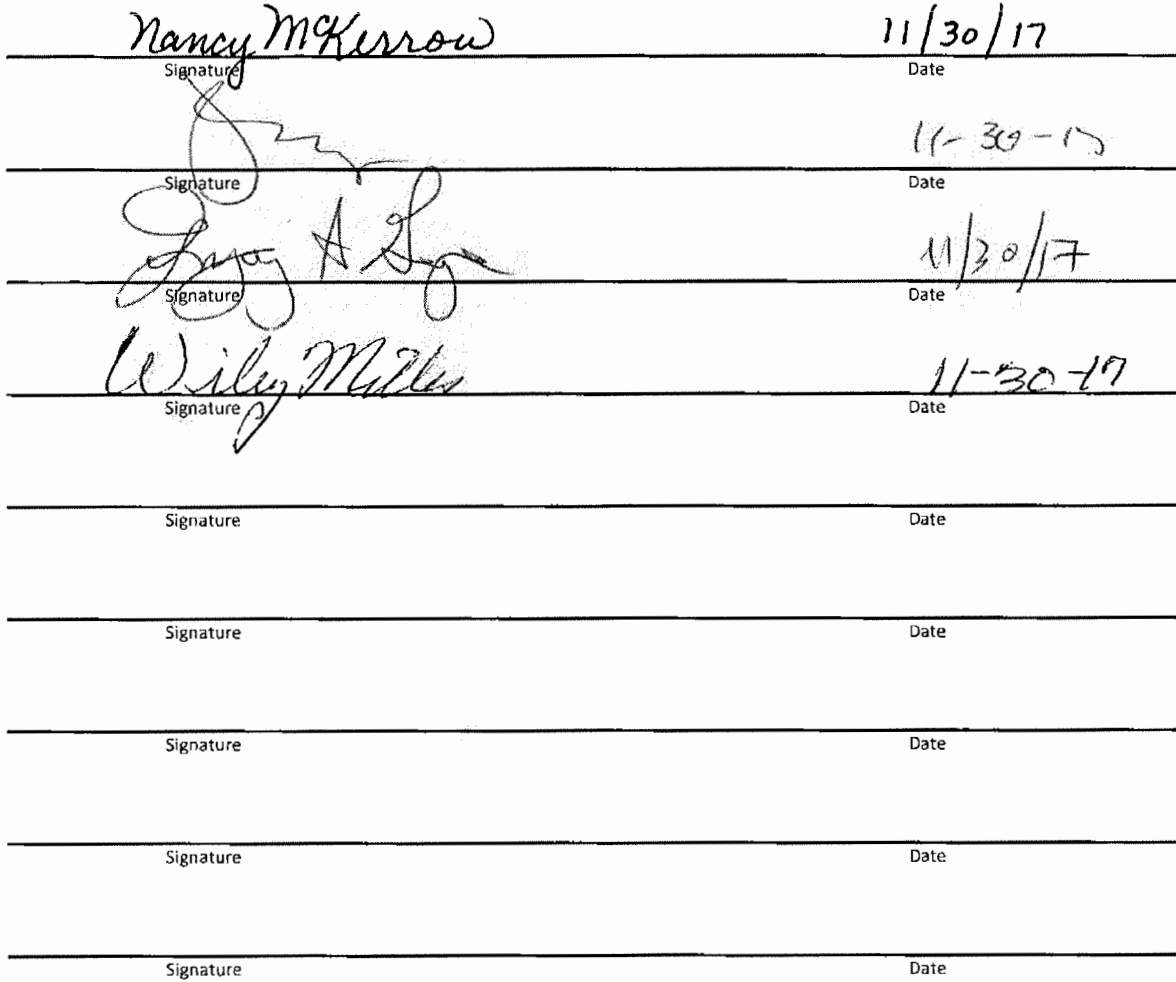 Nancy McKerrow 11/30/17
Signature Date
11-30-17
Signature Date
A 11/30/17
Signature Date
Wiley Miller 11-30-17
Signature Date
Signature Date
Signature Date
Signature Date
Signature Date
Signature Date